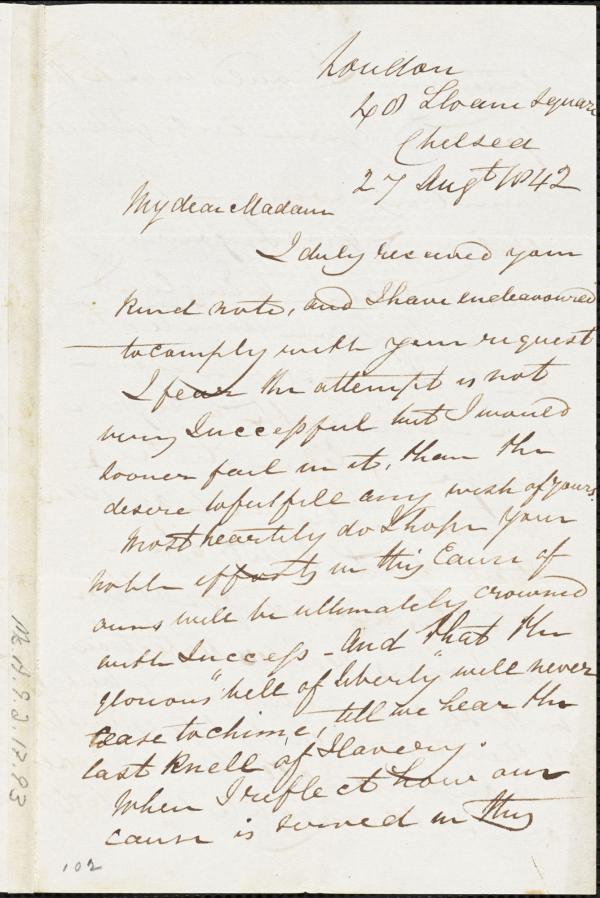 London
48 Sloane Square
Chelsea
27 Augt 1842
My dear Madam
I duly received your
kind note, and I have endeavoured
to comply with your request
I fear the attempt is not
very Successful but I would
sooner fail in it, than the
desire to fulfill any wish of yours.
Most heartily do I hope your
noble efforts in this Cause of
ours will be ultimately crowned
with Success - And that the
glorious "bell of liberty" will never
cease to chime, till we hear the
last knell of Slavery.
When I reflect how our
cause is served in this
102